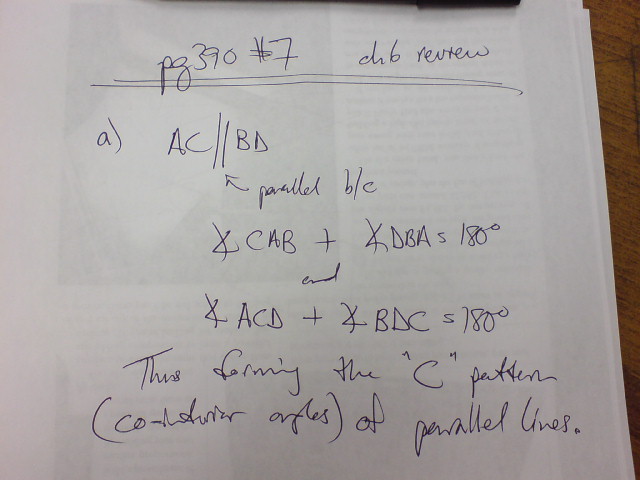 pg 390 #7 ch6 review
a) AC // BD
↖ parallel b/c
∡ CAB + ∡ DBA = 180°
and
∡ ACD + ∡ BDC = 180°
Thus forming the "C" pattern
(co-interior angles) of parallel lines.